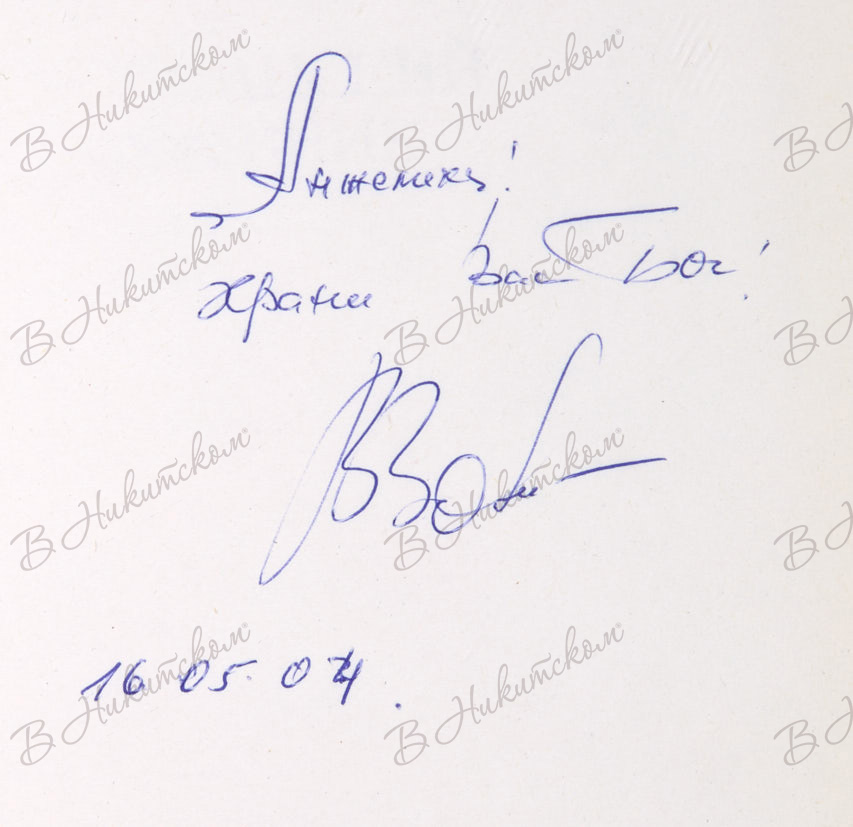 Анжелике!
Храни Вас Бог!
16 05 04.
В Никитском
В Никитском
В Никитском
В Никитском
В Никитском
В Никитском
В Никитском
В Никитском